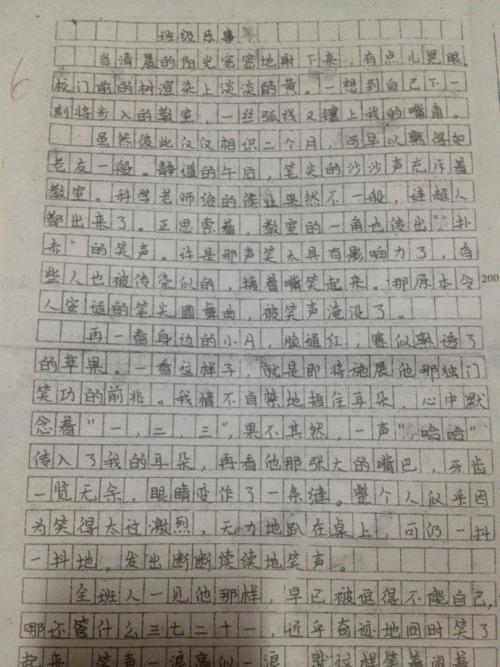 班级乐事
当清晨的阳光密密地射下来，有点儿晃眼。
校门前的树渲染上淡淡的黄。一想到自己下一
刻将步入的教室，一丝弧线又镶上我的嘴角。
虽然彼此仅仅相识二个月，可早以熟得如
老友一般。静谧的午后，笔尖的沙沙声充斥着
教室。科学老师给的作业果然不一般，连超人
都出来了。正思索着，教室的一角也传出"扑
赤"的笑声。许是那声笑太具有影响力了，有
些人也被传染似的，捂着嘴笑起来。那原本令
200
人安适的笔尖圆舞曲，被笑声淹没了。
再一看身边的小月，脸通红，赛似熟透了
的苹果。一看这样子，就是即将施展他那独门
笑功的前兆。我情不自禁地捂住耳朵，心中默
念着"一，二，三"，果不其然，一声"哈哈"
传入了我的耳朵，再看他那张大的嘴巴，牙齿
一览无余，眼睛变作了一条缝。整个人似乎因
为笑得太过激烈，无力地趴在桌上，可仍一抖
一抖地，发出断断读读地笑声。
全班人一见他那样，早已被逗得不能自己，
哪还管什么三七二十一，近乎奇迹地同时笑了
起来，笑声一浪高似一浪，
6